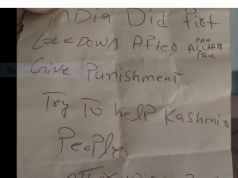 INDIA DiD First
LOCKDOWN AFTER PAK
ALLAH
PAK
Give Punishment
Try To help Kashmir
People